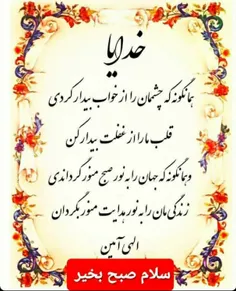 خدایا
همانگونه که چشممان را از خواب بیدار کردی
قلب ما را از غفلت بیدار کن
و همانگونه که جهان را به نور صبح منور گرداندی
زندگی مان را به نور هدایت منور بگردان
الهی آمین
سلام صبح بخیر